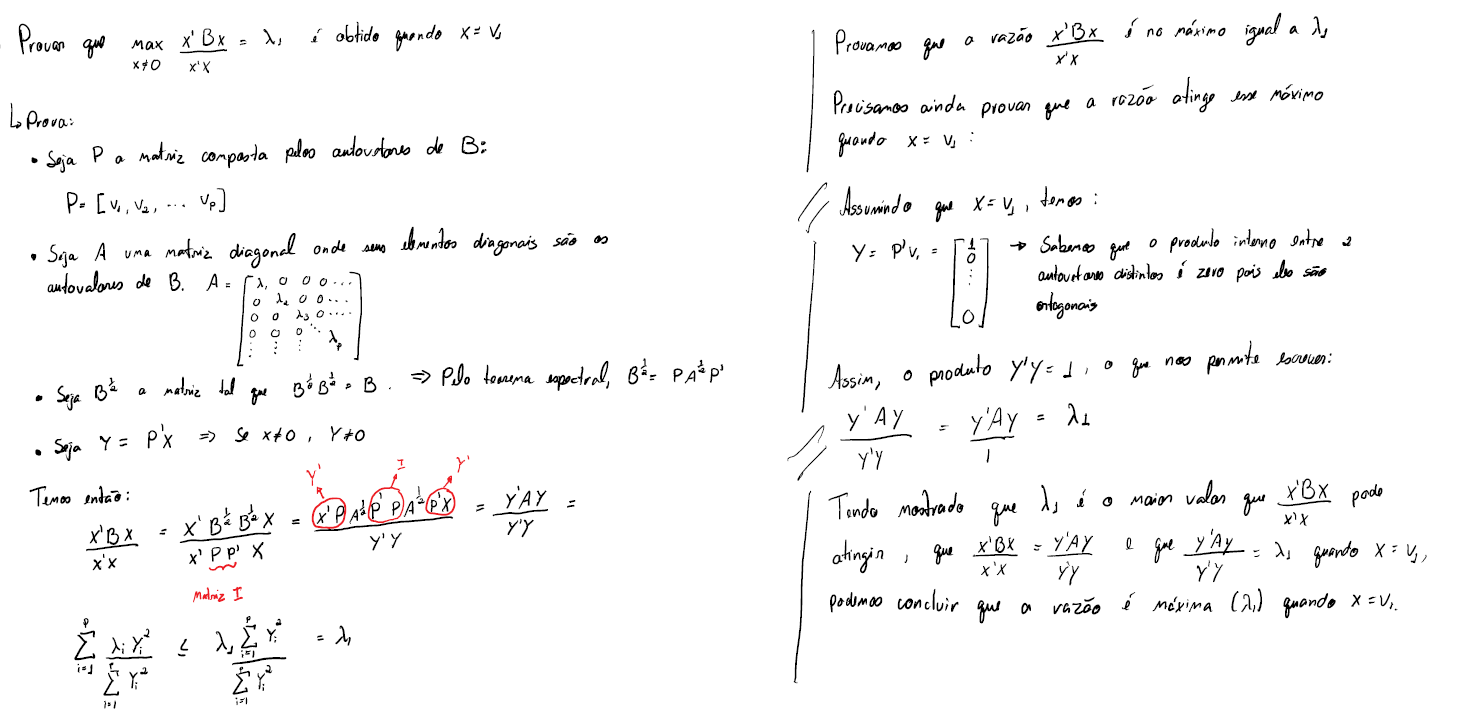 Provar que max x≠0 x'Bx / x'x = λ₁ é obtido quando x = v₁
↳ Prova:
• Seja P a matriz composta pelos autovetores de B:
P = [v₁, v₂, ... vₚ]
• Seja A uma matriz diagonal onde seus elementos diagonais são os
autovalores de B. A = [λ₁ 0 0 0 ...
0 λ₂ 0 0 ...
0 0 λ₃ 0 ....
0 0 0 ⋱
⋮ ⋮ ⋮ λₚ]
• Seja B^½ a matriz tal que B^½ B^½ = B. ⇒ Pelo teorema espectral, B^½ = P A^½ P'
• Seja Y = P'X ⇒ Se x≠0, Y≠0
Y' I Y'
Temos então:
x'Bx / x'x = X' B^½ B^½ X / x' P P' X = x'P A^½ P' P A^½ P'X / Y'Y = Y'AY / Y'Y =
matriz I
∑ i=1 p λᵢ Yᵢ² / ∑ i=1 p Yᵢ² ≤ λ₁ ∑ i=1 p Yᵢ² / ∑ i=1 p Yᵢ² = λ₁
Provamos que a razão x'Bx / x'x é no máximo igual a λ₁
Precisamos ainda provar que a razão atinge esse máximo
quando x = v₁:
Assumindo que x = v₁, temos:
Y = P'v₁ = [1 0 ⋮ 0] → Sabemos que o produto interno entre 2
autovetores distintos é zero pois eles são
ortogonais
Assim, o produto Y'Y = 1, o que nos permite escrever:
Y'AY / Y'Y = Y'AY / 1 = λ₁
Tendo mostrado que λ₁ é o maior valor que x'Bx / x'x pode
atingir, que x'Bx / x'x = Y'AY / Y'Y e que Y'AY / Y'Y = λ₁ quando x = v₁,
podemos concluir que a razão é máxima (λ₁) quando x = v₁.